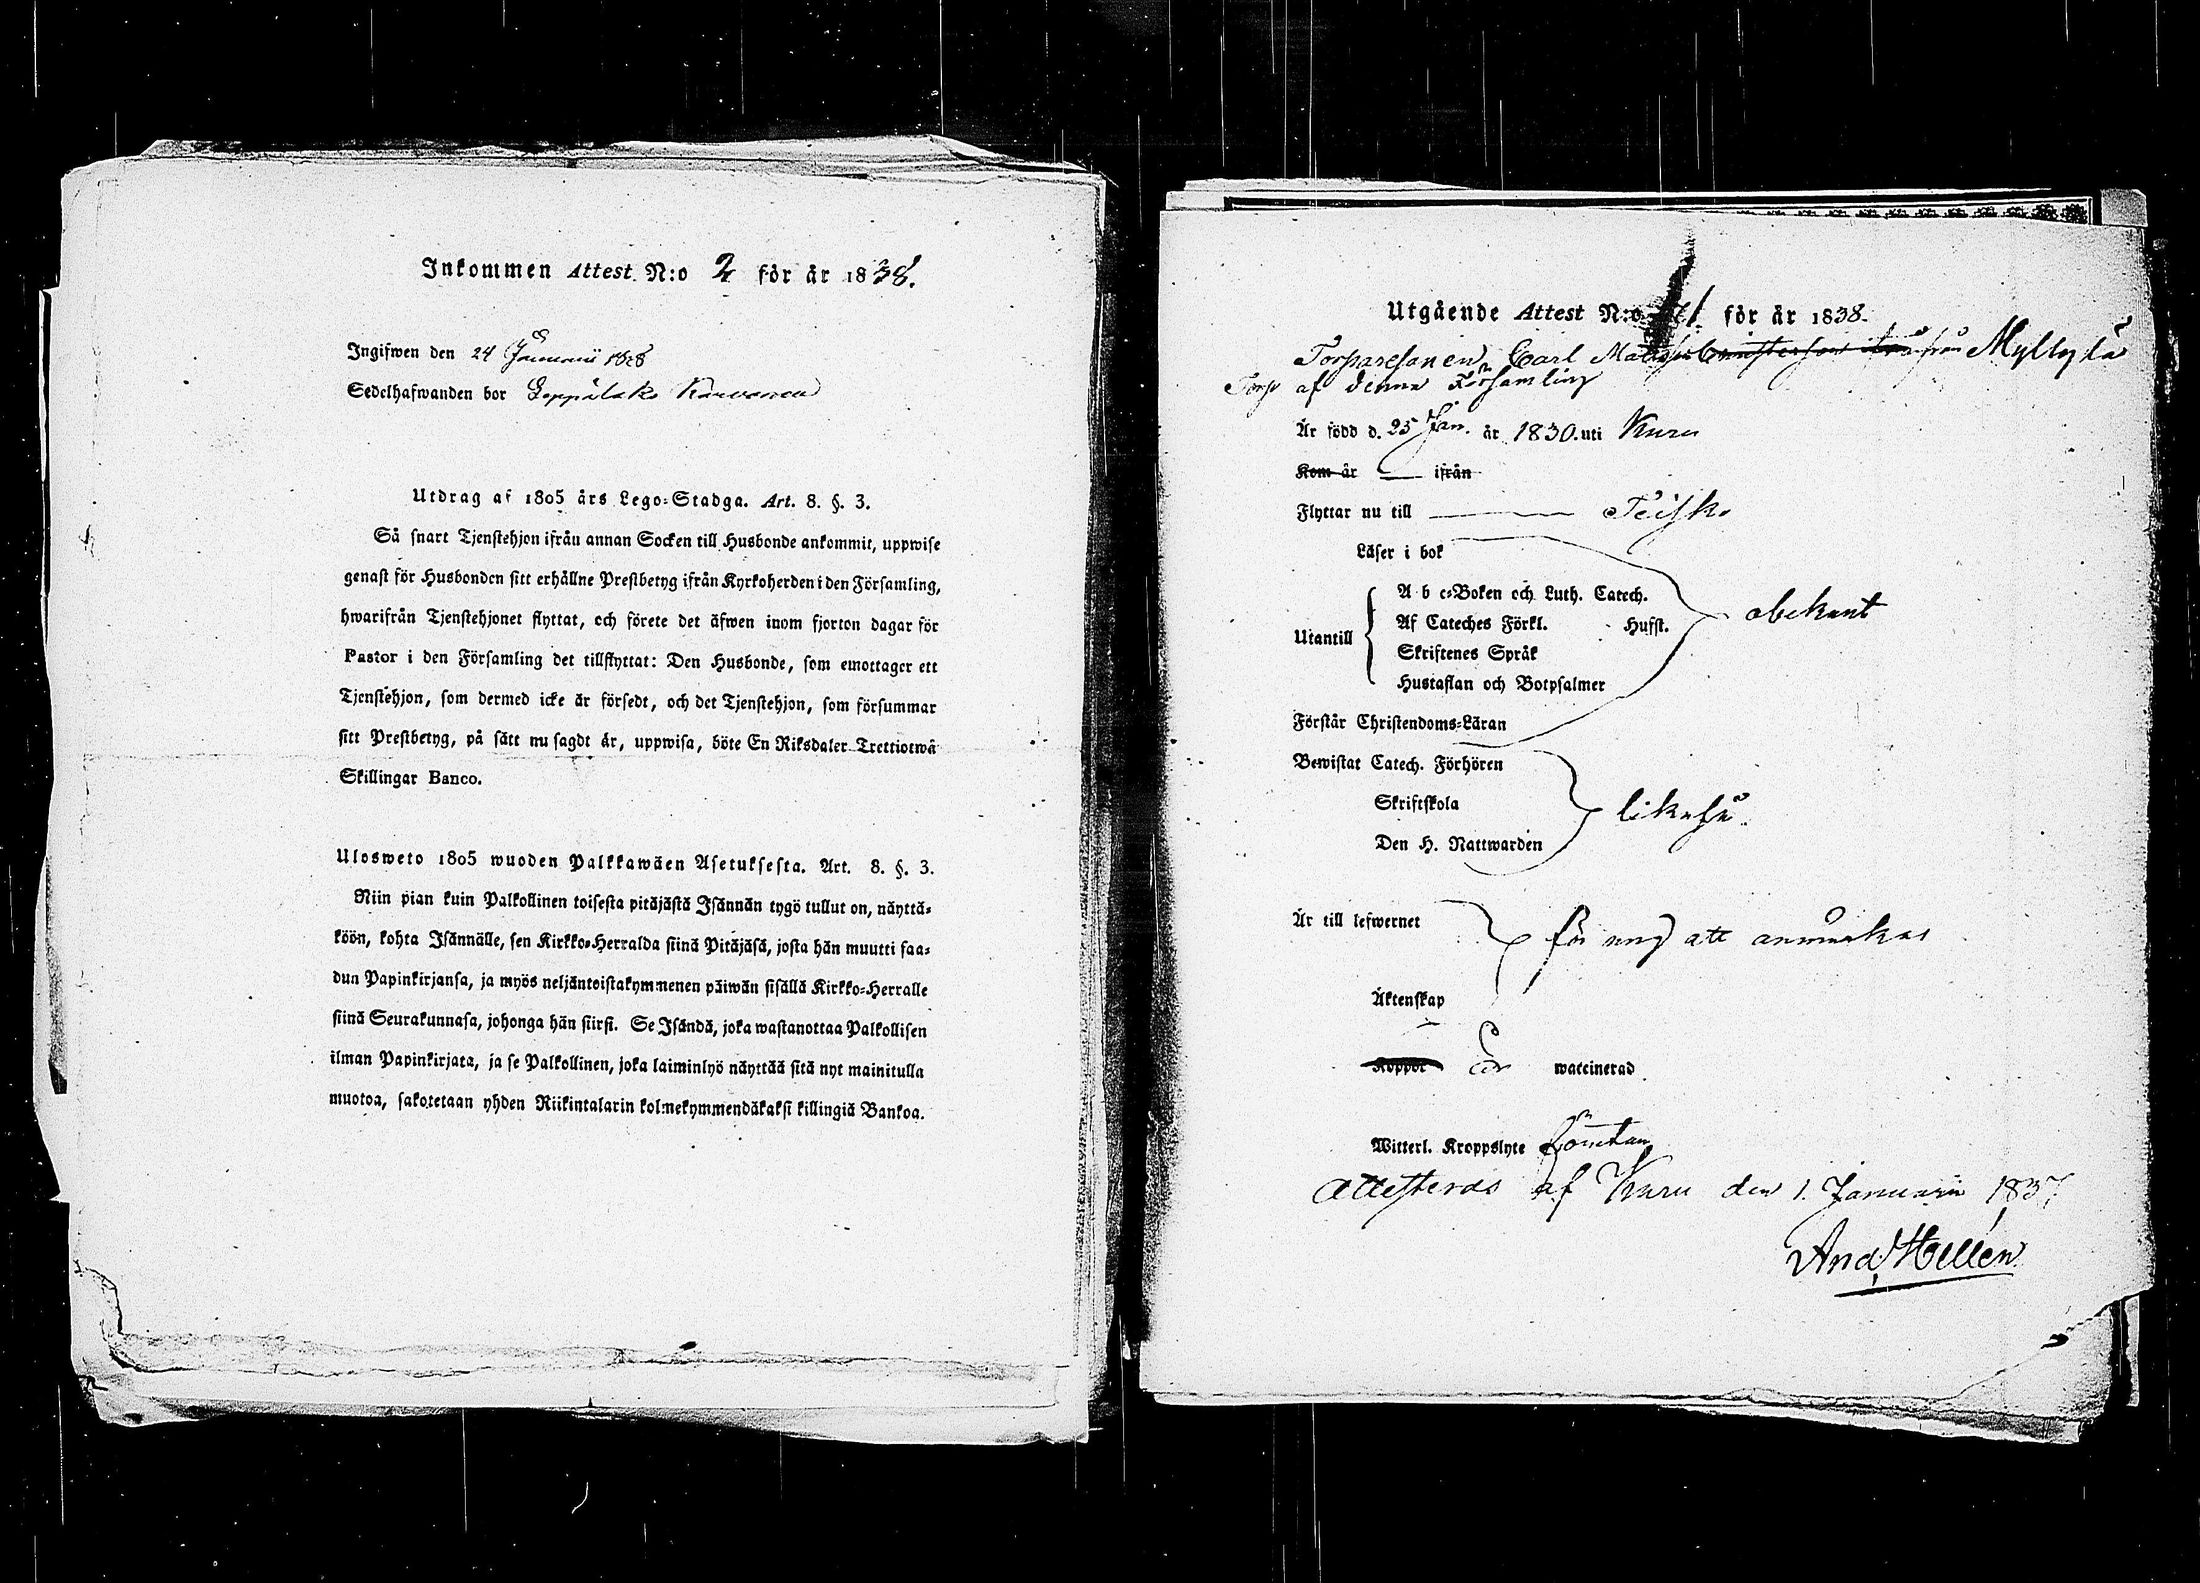 Inkommen Attest. N:o 2 för år 1838.
Ingifwen den 24 Januarii 1838
Sedelhafwanden bor Leppälaks Karvonen
Utdrag af 1805 års Lego-Stadga. Art. 8. §. 3.
Så snart Tjenstehjon ifrån annan Socken till Husbonde ankommit, uppwise
genast för Husbonden sitt erhållne Prestbetyg ifrån Kyrkoherden i den Församling,
hwarifrån Tjenstehjonet flyttat, och förete det äfwen inom fjorton dagar för
Pastor i den Församling det tillflyttat: Den Husbonde, som emottager ett
Tjenstehjon, som dermed icke är försedt, och det Tjenstehjon, som försummar
sitt Prestbetyg, på sätt nu sagdt är, uppwisa, böte En Riksdaler Trettiotwå
Skillingar Banco.
Ulosweto 1805 wuoden Palkkawäen Asetuksesta. Art. 8. §. 3.
Niin pian kuin Palkollinen toisesta pitäjästä Isännän tygö tullut on, näyttä-
köön, kohta Isännälle, sen Kirkko-Herralda siinä Pitäjäsä, josta hän muutti saa-
dun Papinkirjansa, ja myös neljäntoistakymmenen päiwän sisällä Kirkko-Herralle
siinä Seurakunnasa, johonga hän siirsi. Se Isändä, joka wastanottaa Palkollisen
ilman Papinkirjata, ja se Palkollinen, joka laiminlyö näyttää sitä nyt mainitulla
muotoa, sakotetaan yhden Riikintalarin kolmekymmendäkaksi killingiä Bankoa.
Utgående Attest N:o 71 för år 1838.
Torparesonen Carl Matts från Myllylä
Torp af denna Församling
Är född d. 25 Jan. år 1830. uti Kuru
Kom år — ifrån
Flyttar nu till — Teisko
Läser i bok
A b c-Boken och Luth. Catech.
Af Cateches Förkl. Husst.
obekant
Utantill
Skriftenes Språk
Hustaflan och Botpsalmer
Förstår Christendoms-Läran
Bewistat Catech. Förhören
Skriftskola
likaså.
Den H. Nattwarden
Är till lefwernet
för ung att anmärkas
Äktenskap
Koppor Är waccinerad
Witterl. Kroppslyte
Attesteras af Kuru den 1. Januarii 1837
And. Hellén